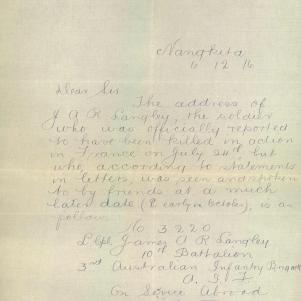 Nangkita
6 12 16
Dear Sir
The address of
J A R Langley, the soldier
who was officially reported
to have been killed in action
in France on July 24th but
who, according to statements
in letters, was seen and spoken
to by friends at a much
later date (? early in October), is as
follows
No 3220
L Cpl James A R Langley
10th Battalion
3rd Australian Infantry Brigade
A. I. F
On Service Abroad